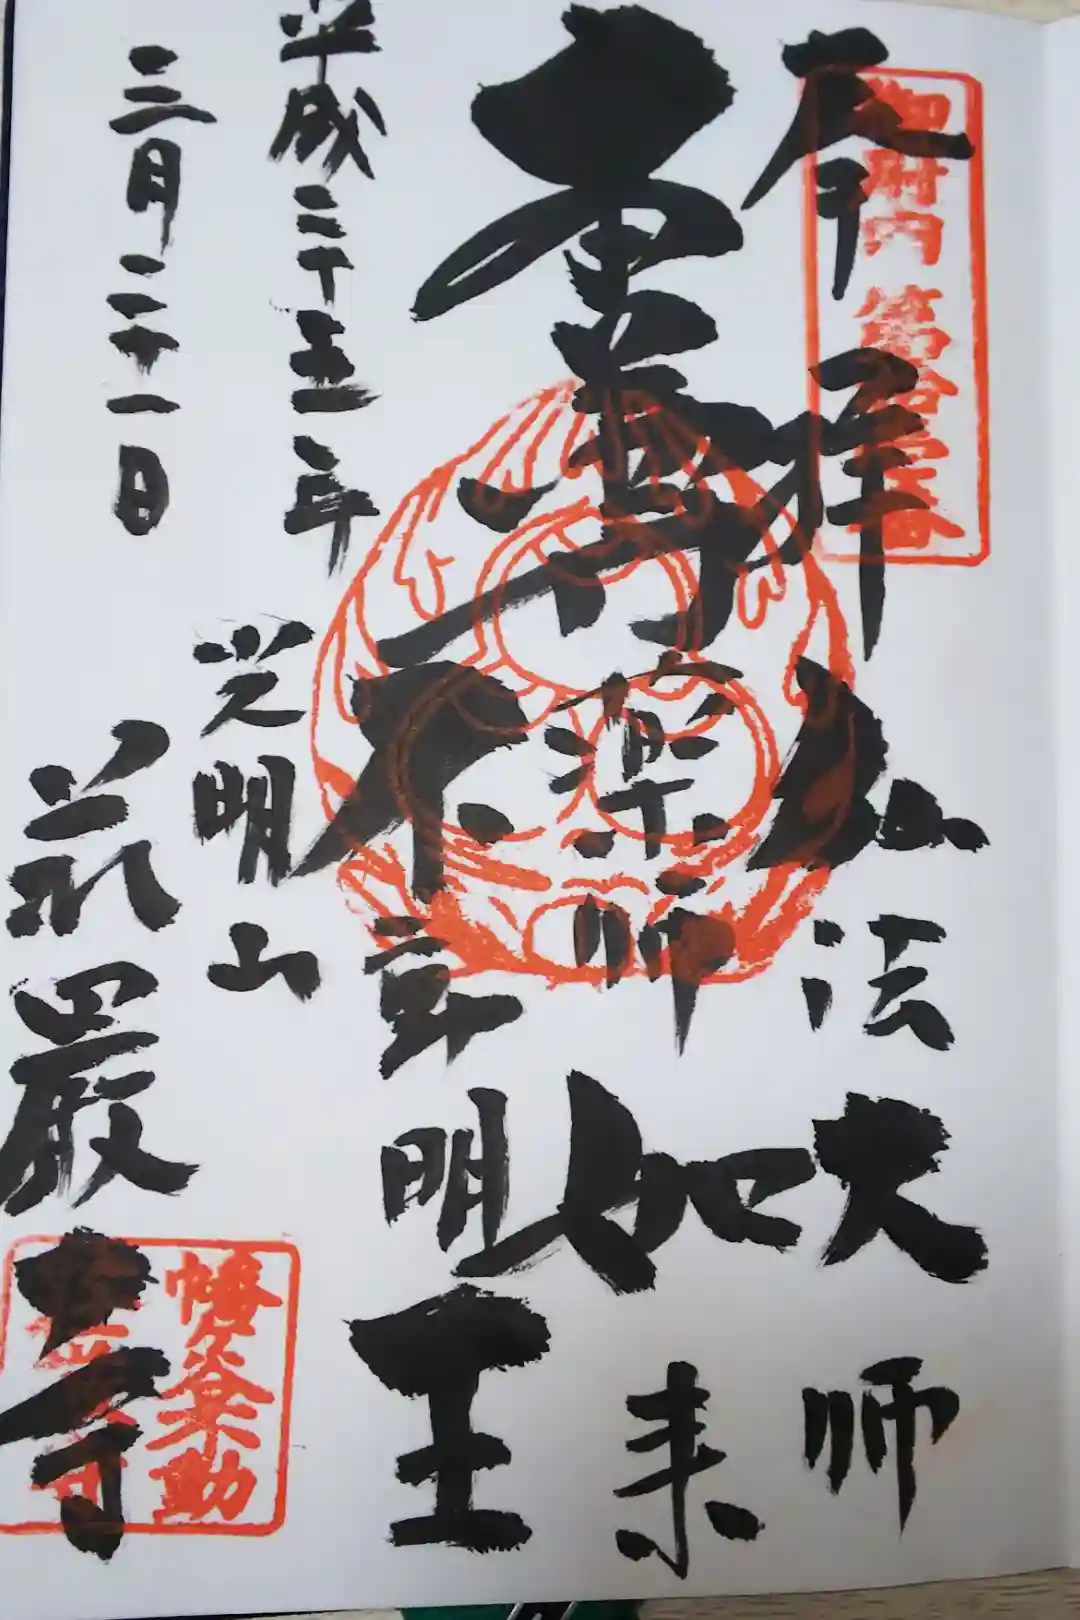 御府内第拾壱番
拝
弘法大師
本尊薬師如来
不動明王
平成二十五年
三月二十一日
光明山
荘厳寺
幡ヶ谷不動